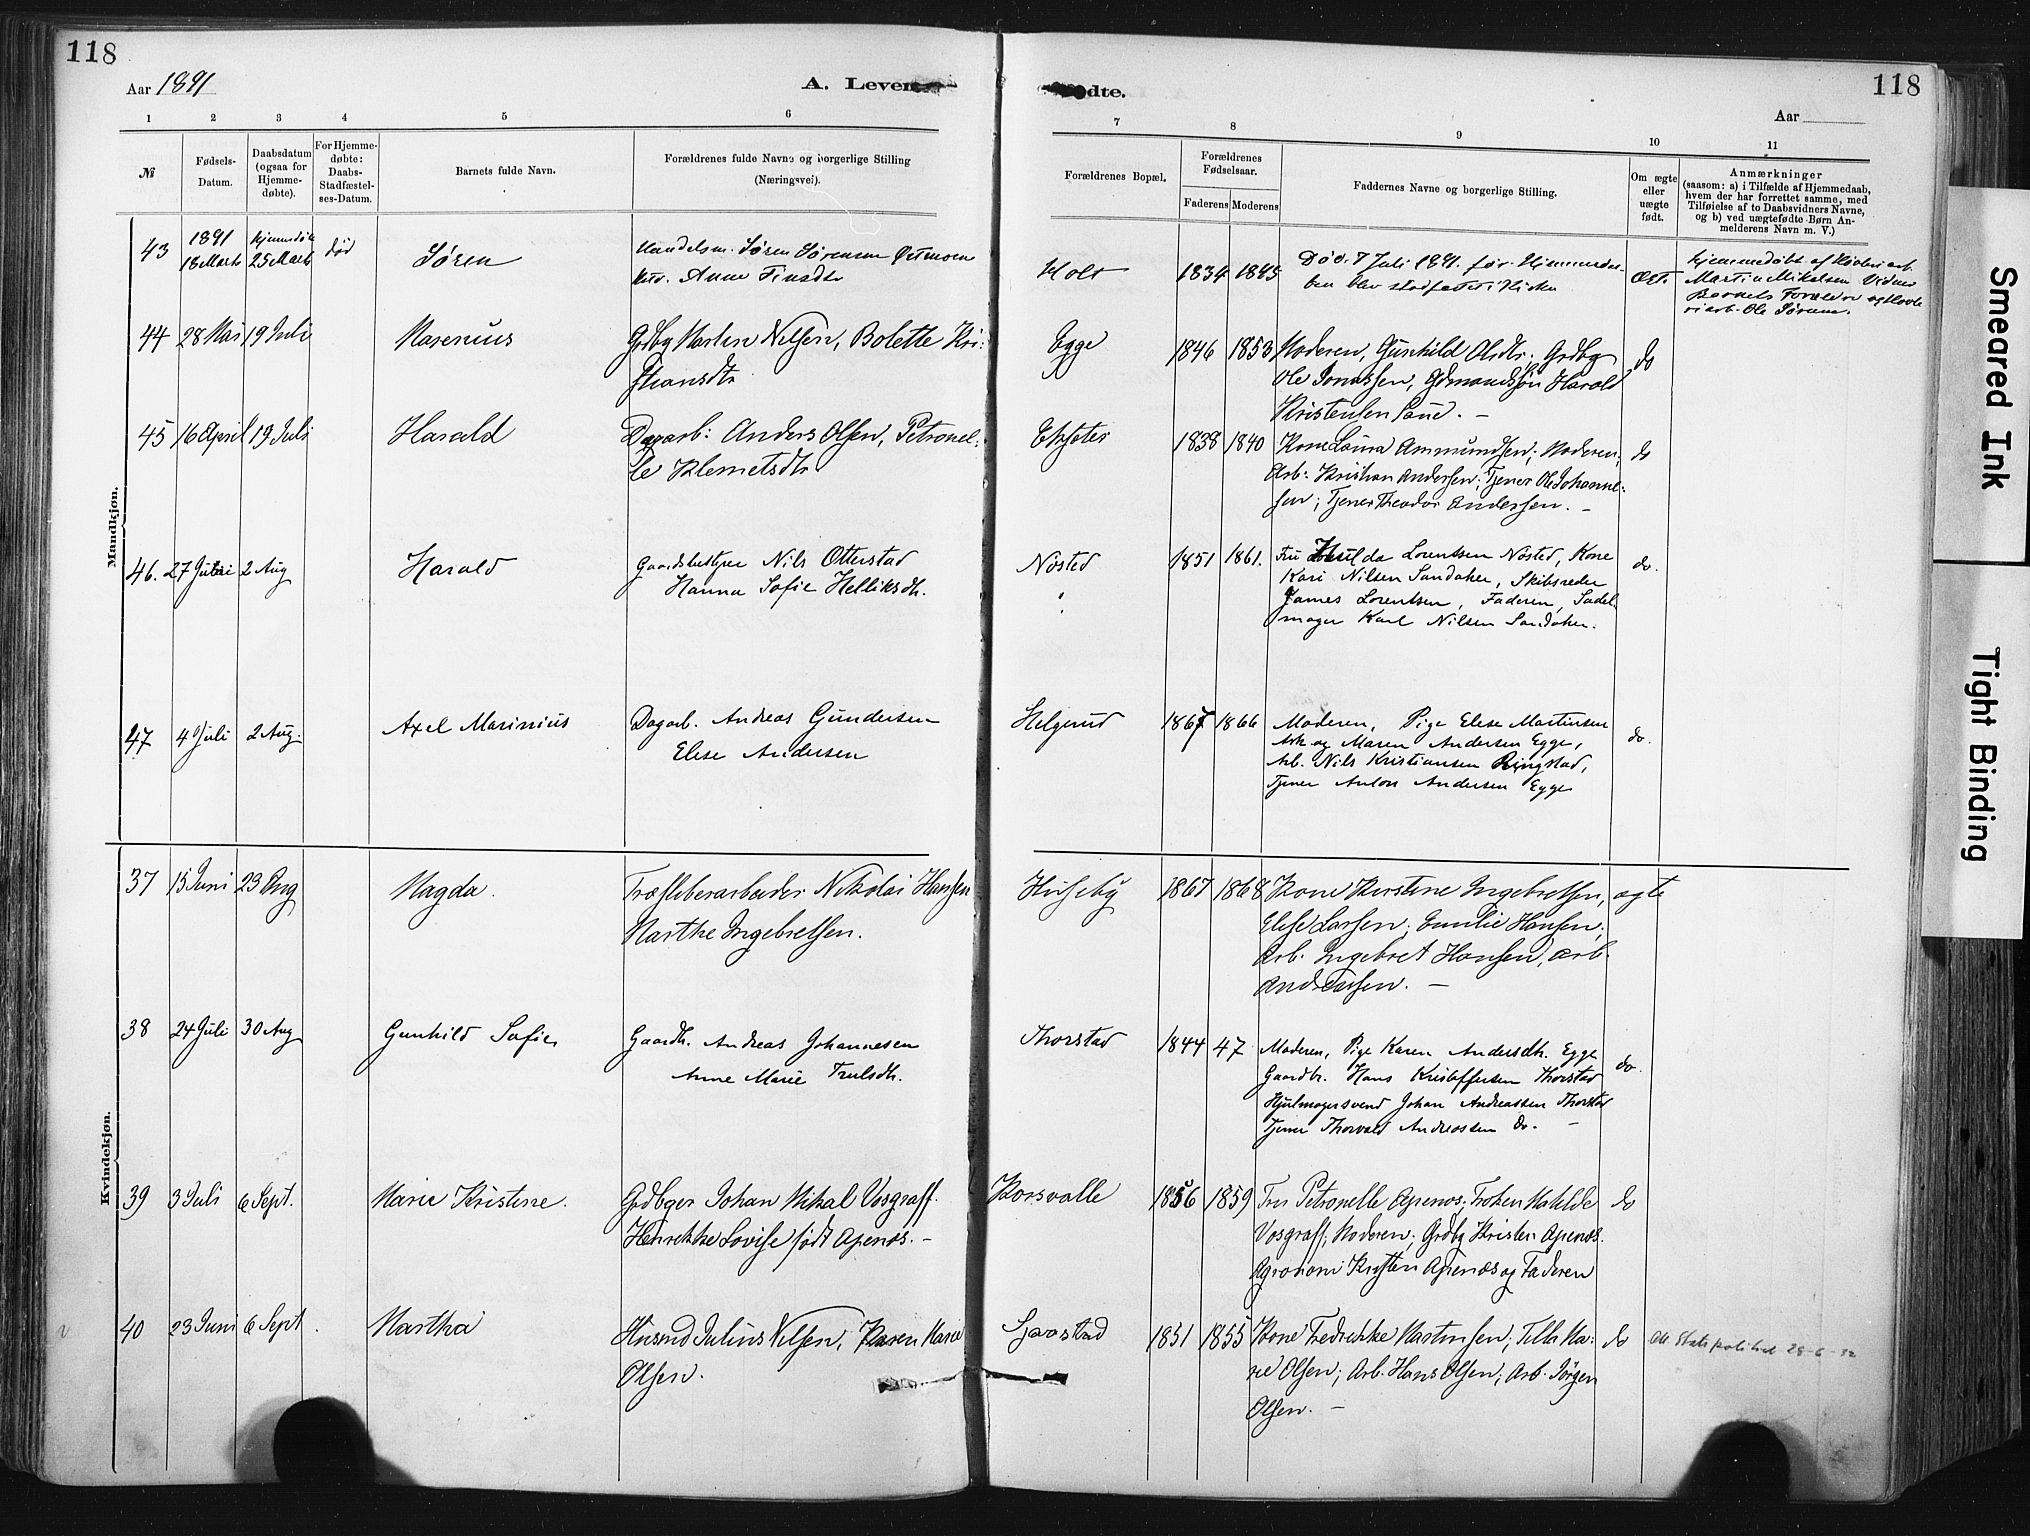 118
118
Aar 1891
A. Levende
fødte.
Aar
1 2 3 4 5 6 7 8 9 10 11
№
Fødsels-
Datum.
Daabsdatum
(ogsaa for
Hjemme-
døbte).
For Hjemme-
døbte:
Daabs-
Stadfæstel-
ses-Datum.
Barnets fulde Navn.
Forældrenes fulde Navne og borgerlige Stilling
(Næringsvei).
Forældrenes Bopæl.
Forældrenes
Fødselsaar.
Faderens Moderens
Faddernes Navne og borgerlige Stilling.
Om ægte
eller
uægte
født.
Anmærkninger
(saasom: a) i Tilfælde af Hjemmedaab,
hvem der har forrettet samme, med
Tilføielse af to Daabsvidners Navne,
og b) ved uægtefødte Børn An-
melderens Navn m. V.)
Mandkjøn.
43
1891
18 Marts
25 Marts
død
Søren
Handelsm. Søren Sørensen
Anne Finsdtr
Holt
1834 1845
Død 7 Juli 1891 før Hjemmedaa-
ben blev stadfæstet i Kirken
Ægte
Hjemmedøbt af
Martin Mikelsen Vidner
Barnets Forældre og
Ole Sørum.
44 28 Mai 19 Juli
Marenius
Grdbg Martin Nilsen, Bolette Kri-
stiansdtr
Egge
1846 1853
Moderen, Gunhild Olsdtr. Grdbg
Ole Jonassen, Gdmandssøn Harald
Kristensen Saue. –
do
45 16 April 19 Juli
Harald
Dagarb: Anders Olsen, Petronel-
le Klemetsdtr
1838 1840
Kone Laura Ammundsen; Moderen;
Arb: Kristian Andersen; Tjener Ole Johanne-
sen; Tjener Theodor Andersen. –
do
46. 27 Juni 2 Aug
Harald
Gaardsbestyrer Nils Otterstad
Hanna Sofie Helliksdtr.
Nøsted
1851 1861.
Fru Hulda Lorentsen Nøsted, Kone
Kari Nilsen Sandaker, Skibsreder
James Lorentsen, Faderen, Sadel-
mager Karl Nilsen Sandaker.
do.
47 4 Juli 2 Aug.
Axel Marinius
Dagarb. Andreas Gundersen
Elise Andersen
Helgerud
1867 1866
Moderen, Pige Elise Martinsen
Ask og Maren Andersen Egge,
Arb. Nils Kristiansen Ringstad,
Tjener Anton Andersen Egge
do.
Kvindekjøn.
37 15 Juni 23 Aug
Magda.
Træsliberarbeider Nikolai Hansen
Marthe Ingebretsen.
Huseby
1867 1868
Kone Kirstine Ingebretsen,
Elise Larsen; Emilie Hansen;
Arb. Ingebret Hansen, Arb.
And. Larsen. –
ægte
38 24 Juli 30 Aug
Gunhild Sofie
Gaardb. Andreas Johannesen
Anne Marie Trulsdtr.
Thorstad
1844 47
Moderen, Pige Karen Andersdtr. Egge
Gaardbr. Hans Kristoffersen Thorstad
Hjulmagersvend Johan Andreassen Thorstad
Tjener Thorvald Andreassen do. –
do.
39 3 Juli 6 Sept.
Marie Kristine.
Grdbger Johan Mikal Vosgraff.
Henrikke Lovise født Apenæs. –
Korsvalle
1856 1859
Fru Petronelle Apenæs; Frøken Matilde
Vosgraff; Moderen; Grdbg Kristen Apenæs.
Agronom Kristen Apenæs og Faderen
do
40 23 Juni 6 Sept.
Martha
Husmd Julius Nilsen, Karen Marie
Olsen.
Gjærstad
1851 1855
Kone Fredrikke Martinsen; Tilla Ma-
rie Olsen; Arb. Hans Olsen; Arb. Jørgen
Olsen. –
do
Att Statspolitiet 28-6-32
Smeared Ink
Tight Binding